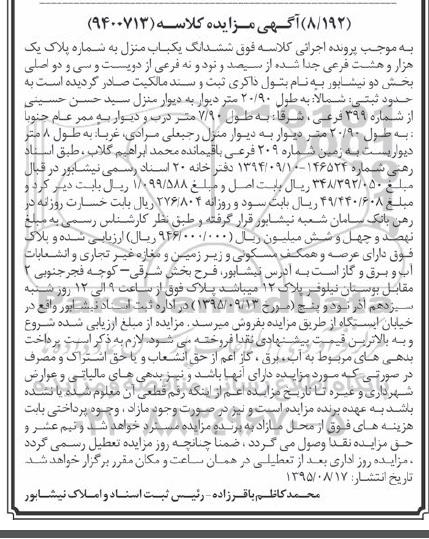 (۸/۱۹۲) آگهی مزایده کلاسه (۹۴۰۰۷۱۳)
به موجب پرونده اجرائی کلاسه فوق ششدانگ یکباب منزل به شماره پلاک یک
هزار و هشت فرعی جدا شده از سیصد و نود و نه فرعی از دویست و سی و دو اصلی
بخش دو نیشابور به نام بتول ذاکری ثبت و سند مالکیت صادر گردیده است به
حدود ثبتی: شمالا: به طول ۲۰/۹۰ متر دیوار به دیوار منزل سید حسن حسینی
از شماره ۳۹۹ فرعی، شرقا: به طول ۷/۹۰ متر درب و دیوار به ممر عام جنوبا
: به طول ۲۰/۹۰ متر دیوار به دیوار منزل رجبعلی مرادی، غربا: به طول ۸ متر
دیواریست به زمین شماره ۲۰۹ فرعی باقیمانده محمد ابراهیم گلاب، طبق اسناد
رهنی شماره ۱۴۶۵۲۴-۱۳۹۴/۰۹/۱۰ دفتر خانه ۲۰ اسناد رسمی نیشابور در قبال
مبلغ ۳۴۸/۳۹۲/۰۵۰ ریال بابت اصل و مبلغ ۱/۰۹۹/۵۸۸ ریال بابت دیر کرد و
مبلغ ۴۹/۴۴۰/۶۰۸ ریال بابت سود و روزانه ۲۷۶/۸۰۴ ریال بابت خسارت روزانه در
رهن بانک سامان شعبه نیشابور قرار گرفته و طبق نظر کارشناس رسمی به مبلغ
نهصد و چهل و شش میلیون ریال (۹۴۶/۰۰۰/۰۰۰ ریال) ارزیابی شده و پلاک
فوق دارای عرصه و همکف مسکونی و زیر زمین و مغازه غیر تجاری و انشعابات
آب و برق و گاز است به آدرس نیشابور، فرح بخش شرقی– کوچه فجر جنوبی ۲
مقابل بوستان نیلوفر پلاک ۱۲ میباشد پلاک فوق از ساعت ۹ الی ۱۲ روز شنبه
سیزدهم آذر نود و پنج (مورخ ۱۳۹۵/۰۹/۱۳) در اداره ثبت اسناد نیشابور واقع در
خیابان ایستگاه از طریق مزایده بفروش میرسد. مزایده از مبلغ ارزیابی شده شروع
و به بالاترین قیمت پیشنهادی نقدا فروخته می شود. لازم به ذکر است پرداخت
بدهی های مربوط به آب، برق، گاز اعم از حق انشعاب و یا حق اشتراک و مصرف
در صورتی که مورد مزایده دارای آنها باشد و نیز بدهی های مالیاتی و عوارض
شهرداری و غیره تا تاریخ مزایده اعم از اینکه رقم قطعی آن معلوم شده یا نشده
باشد به عهده برنده مزایده است و نیز در صورت وجود مازاد، وجوه پرداختی بابت
هزینه های فوق از محل مازاد به برنده مزایده مسترد خواهد شد و نیم عشر و
حق مزایده نقدا وصول می گردد، ضمنا چنانچه روز مزایده تعطیل رسمی گردد
، مزایده روز اداری بعد از تعطیلی در همان ساعت و مکان مقرر برگزار خواهد شد.
تاریخ انتشار: ۱۳۹۵/۰۸/۱۷
محمد کاظم باقرزاده - رئیس ثبت اسناد و املاک نیشابور